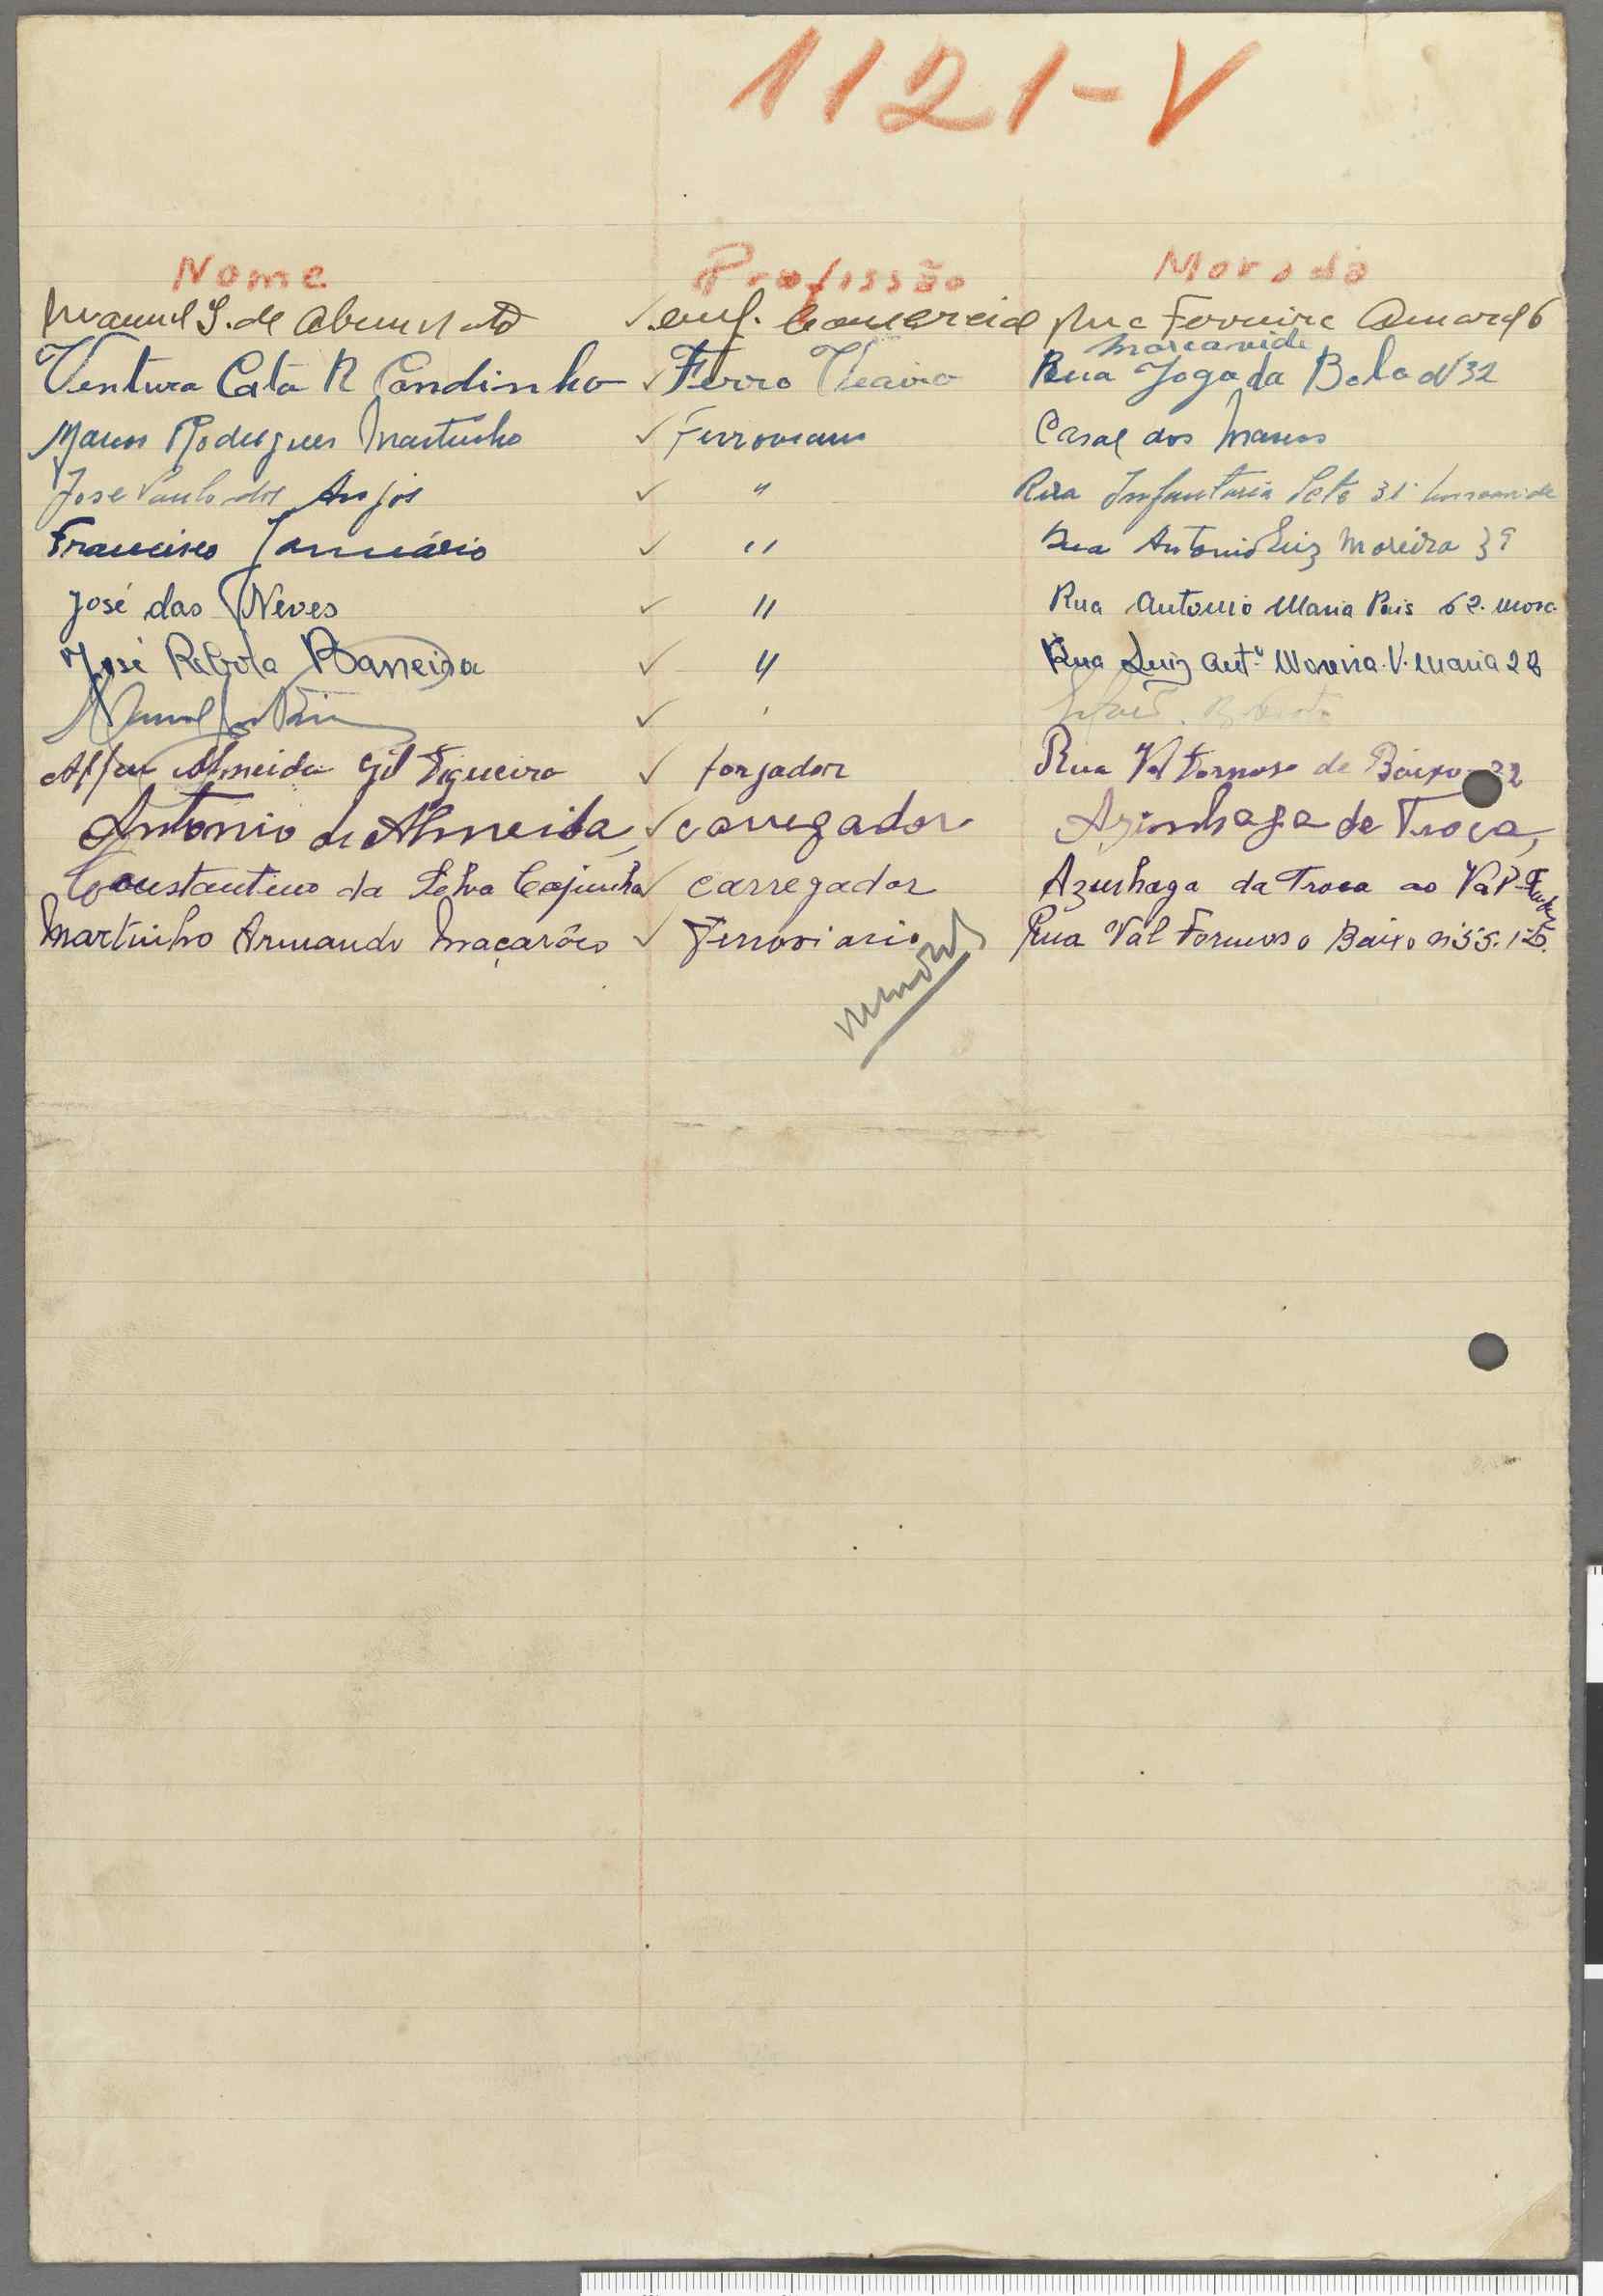 1121-V
Nome Profissão Morada
Manuel S. de Abreu ✓ emp. Comercial Rua Ferreira Amaral 6
Moscavide
Ventura Catá R Candinho ✓ Ferro Veairo Rua Jogo da Bola Nº 32
Rodrigues Martinho ✓ Ferroviario Casal dos
José Paulo dos Anjos ✓ " Rua Infantaria Sete 31 Moscavide
Francisco Januário ✓ " Rua Antonio Luiz Moreira 39
José das Neves ✓ " Rua Antonio Maria Pais 62. Mosc.
José Rebola Barreira ✓ " Rua Luiz Antº Moreira. V. Maria 28
Manuel ✓
Almeida Gil Figueira ✓ forjador Rua Val Formoso de Baixo 22
Antonio de Almeida, ✓ carregador Azinhaga de Troca,
Constantino da Selva Cajinha ✓ carregador Azinhaga da Troca ao Val
Martinho Armando Maçarôco ✓ Ferroviario Rua Val Formoso Baixo Nº 55. 1º